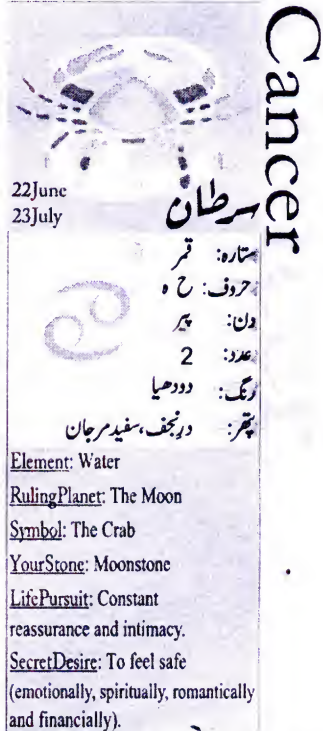 Cancer
22June
23July
سرطان
ستارہ: قمر
حروف: ح ہ
دن: پیر
عدد: 2
رنگ: دودھیا
پتھر: درنجف،سفیدمرجان
Element: Water
RulingPlanet: The Moon
Symbol: The Crab
YourStone: Moonstone
LifePursuit: Constant
reassurance and intimacy.
SecretDesire: To feel safe
(emotionally, spiritually, romantically
and financially).